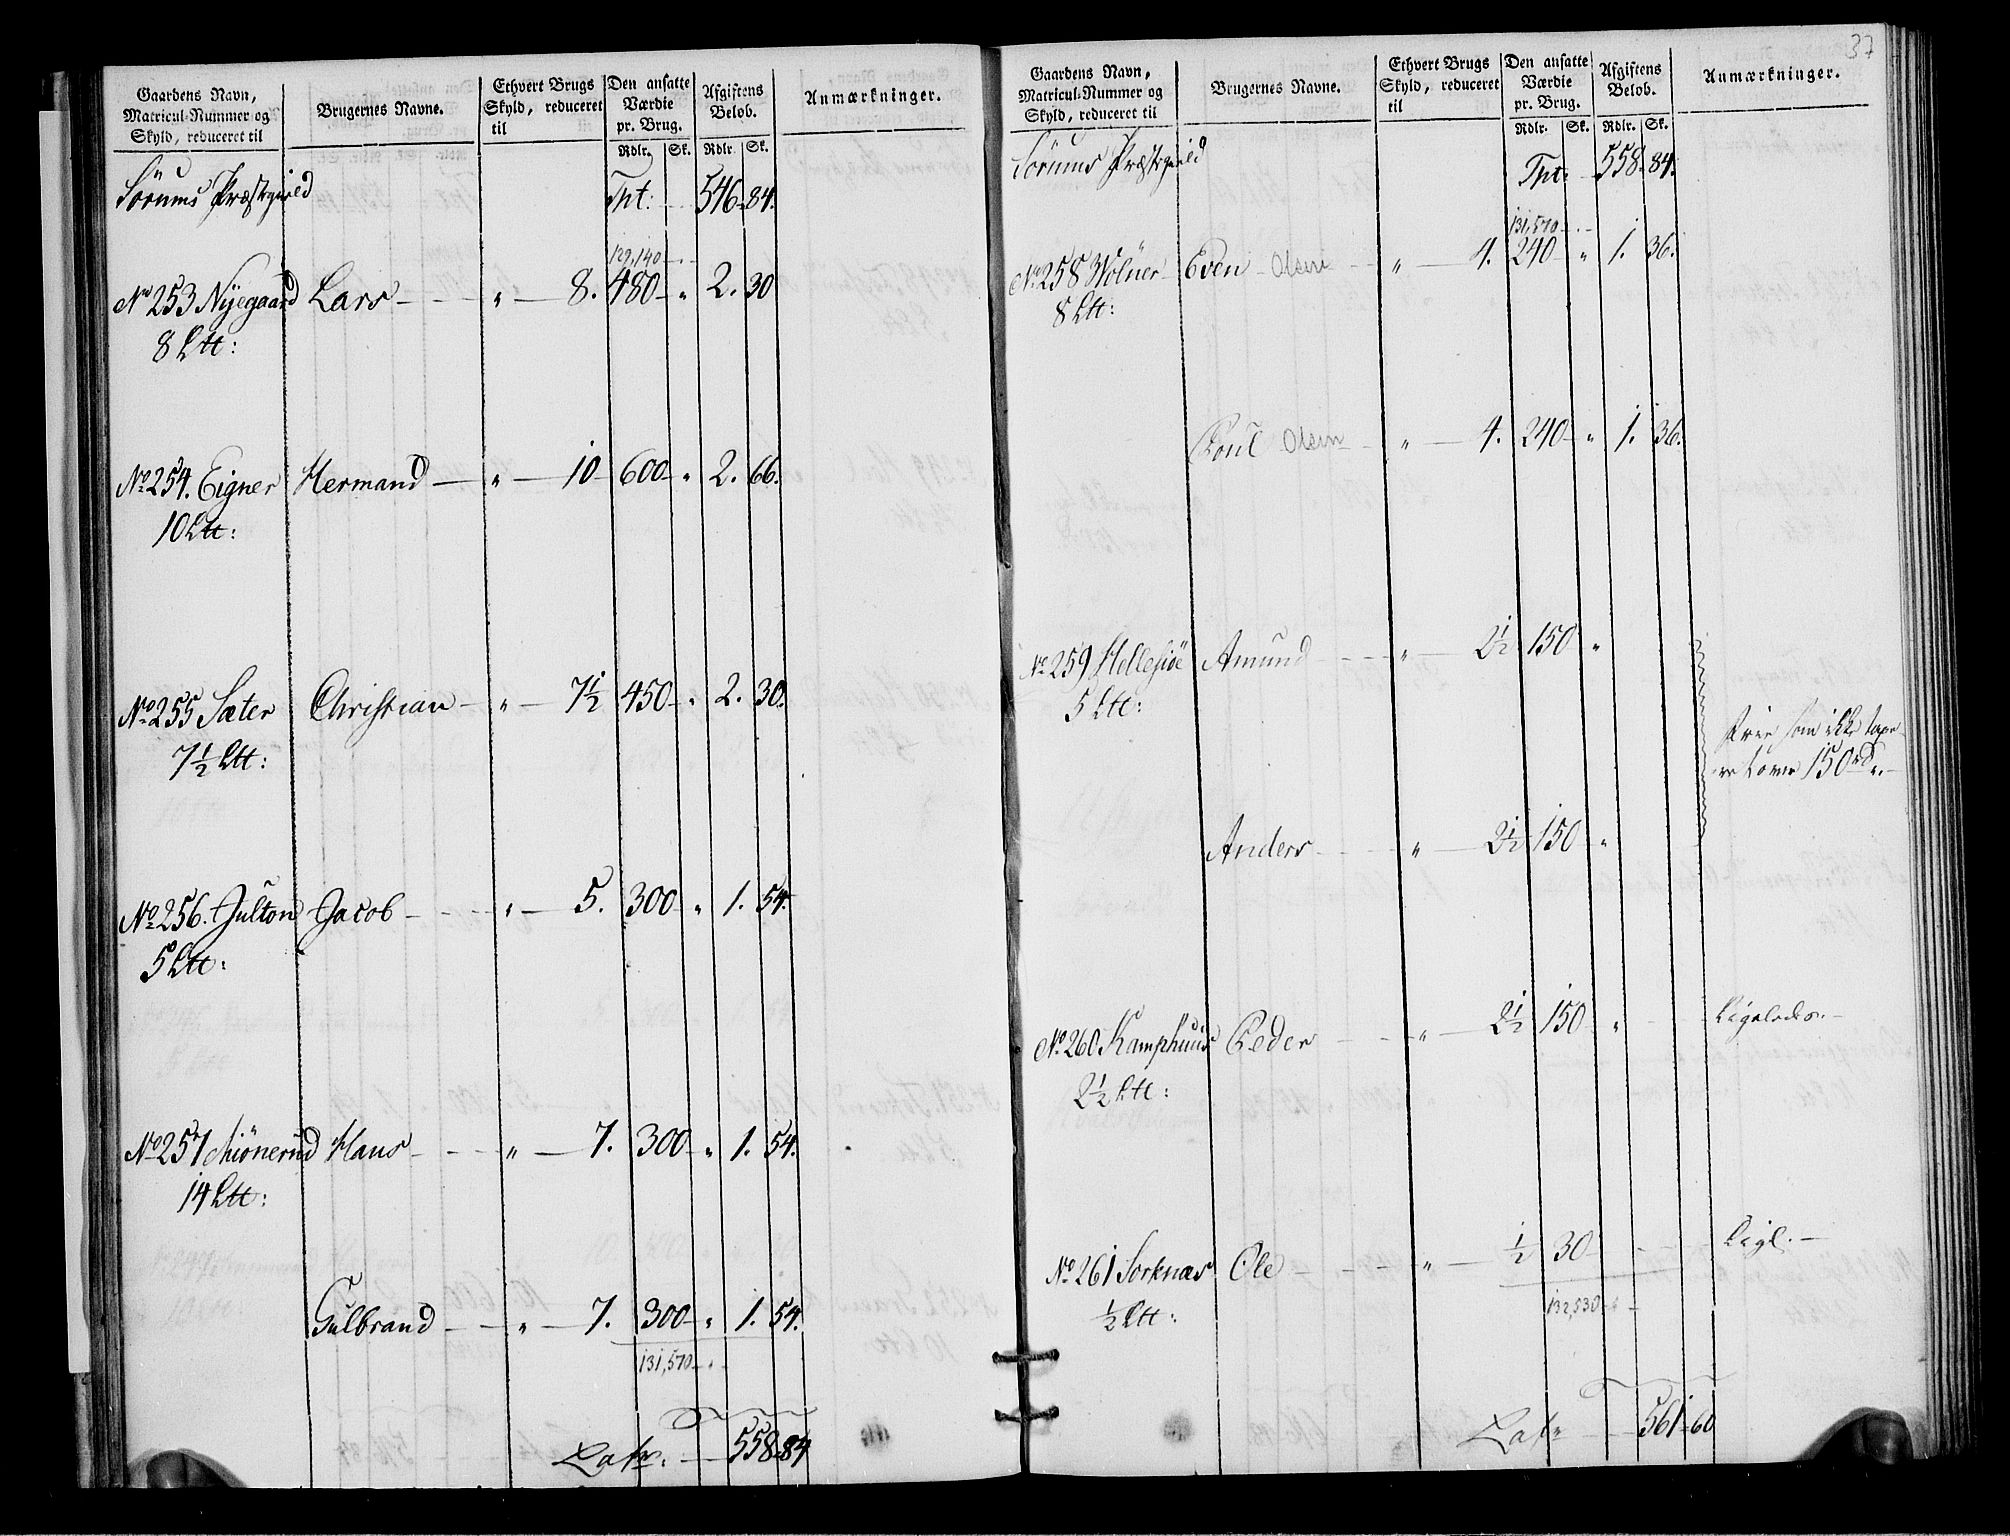 Gaardens Navn, Matricul-Nummer og Skyld, reduceret til | Brugernes Navne. | Ethvert Brugs Skyld, reduceret til | Den ansatte Værdie pr. Brug. Rdlr. Sk. | Afgiftens Belob. Rdlr. Sk. | Anmærkninger.
Sørums Præstegield Tpt: 546 84.
129,140
No 253 Nyegaard Lars " 8. 480 " 2. 30
8 Ltt:
No 254. Eigner Hermand " 10 600 " 2. 66.
10 Ltt:
No 255 Sæter Christian " 7½ 450 " 2. 30.
7½ Ltt:
No 256. Julton Jacob " 5. 300 " 1. 54.
5 Ltt:
No 257 Miønerud Hans " 7. 300 " 1. 54.
14 Ltt:
Gulbrand " 7. 300 " 1. 54.
131,570
Latr. 558 84
37
Gaardens Navn, Matricul-Nummer og Skyld, reduceret til | Brugernes Navne. | Ethvert Brugs Skyld, reduceret til | Den ansatte Værdie pr. Brug. Rdlr. Sk. | Afgiftens Belob. Rdlr. Sk. | Anmærkninger.
Sørums Præstegield Tpt: 558 84.
131,570
No 258 Wølner Even Olsen " 4. 240 " 1. 36.
8 Ltt:
Poul Olsen " 4. 240 " 1. 36.
No 259 Hellesiøe Amund " 2½ 150 "
5 Ltt:
frie som ikke taxe-
ret over 150 rd.
Anders " 2½ 150 "
No 260 Kamphuus Peder " 2½ 150 " Ligeledes.
2½ Ltt:
No 261 Sorknæs Ole " ½ 30 Ligl.
½ Ltt:
132,530
Latr 561 60